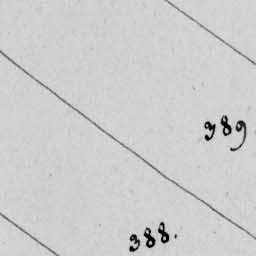 389
388.